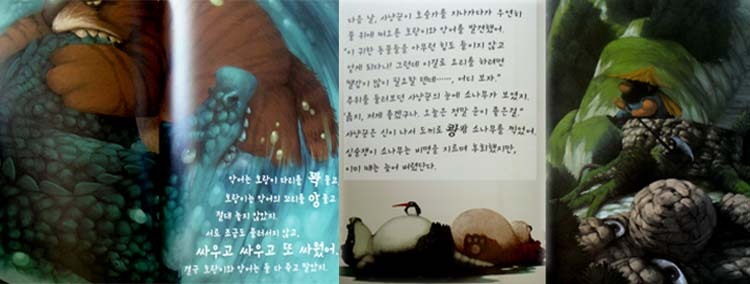 악어는 호랑이 다리를 꽉 물고,
호랑이는 악어의 꼬리를 앙 물고
절대 놓지 않았지.
서로 조금도 물러서지 않고,
싸우고 싸우고 또 싸웠어.
결국 호랑이와 악어는 둘 다 죽고 말았지.
다음 날, 사냥꾼이 호숫가를 지나가다가 우연히
물 위에 떠오른 호랑이와 악어를 발견했어.
"이 귀한 동물들을 아무런 힘도 들이지 않고
얻게 되다니! 그런데 이걸로 요리를 하려면
땔감이 많이 필요할 텐데……, 어디 보자."
주위를 둘러보던 사냥꾼의 눈에 소나무가 보였지.
"옳지, 저게 좋겠구나. 오늘은 정말 운이 좋은걸."
사냥꾼은 신이 나서 도끼로 쾅쾅 소나무를 찍었어.
심술쟁이 소나무는 비명을 지르며 후회했지만,
이미 때는 늦어 버렸단다.